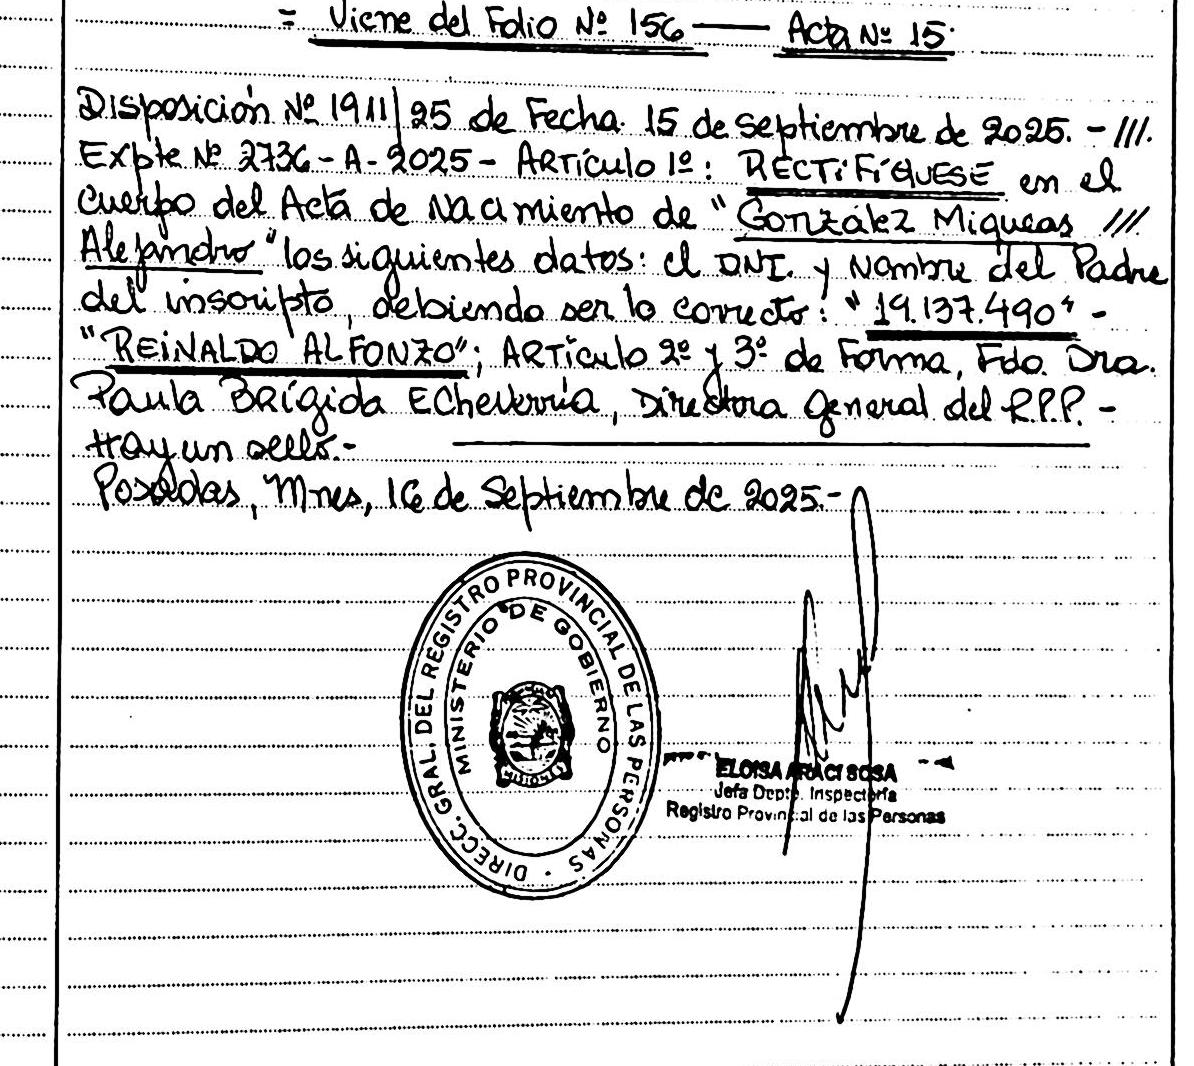 = Viene del Folio Nº 156 — Acta Nº 15.
Disposición Nº 1911/25 de Fecha. 15 de septiembre de 2025. - ///.
Expte Nº 2736-A-2025- Artículo 1º: RECTIFÍQUESE en el
Cuerpo del Acta de Nacimiento de "González Miqueas ///
Alejandro" los siguientes datos: el DNI. y Nombre del Padre
del inscripto, debiendo ser lo correcto: "19.137.490" -
"REINALDO ALFONZO"; Artículo 2º y 3º de Forma, Fdo. Dra.
Paula Brígida Echeverría, Directora General del R.P.P. -
Hay un sello.-
Posadas, Mnes, 16 de Septiembre de 2025.-
DIRECC. GRAL. DEL REGISTRO PROVINCIAL DE LAS PERSONAS
MINISTERIO DE GOBIERNO
MISIONES
ELOISA ARACI SOSA
Jefa Depto. Inspectoría
Registro Provincial de las Personas